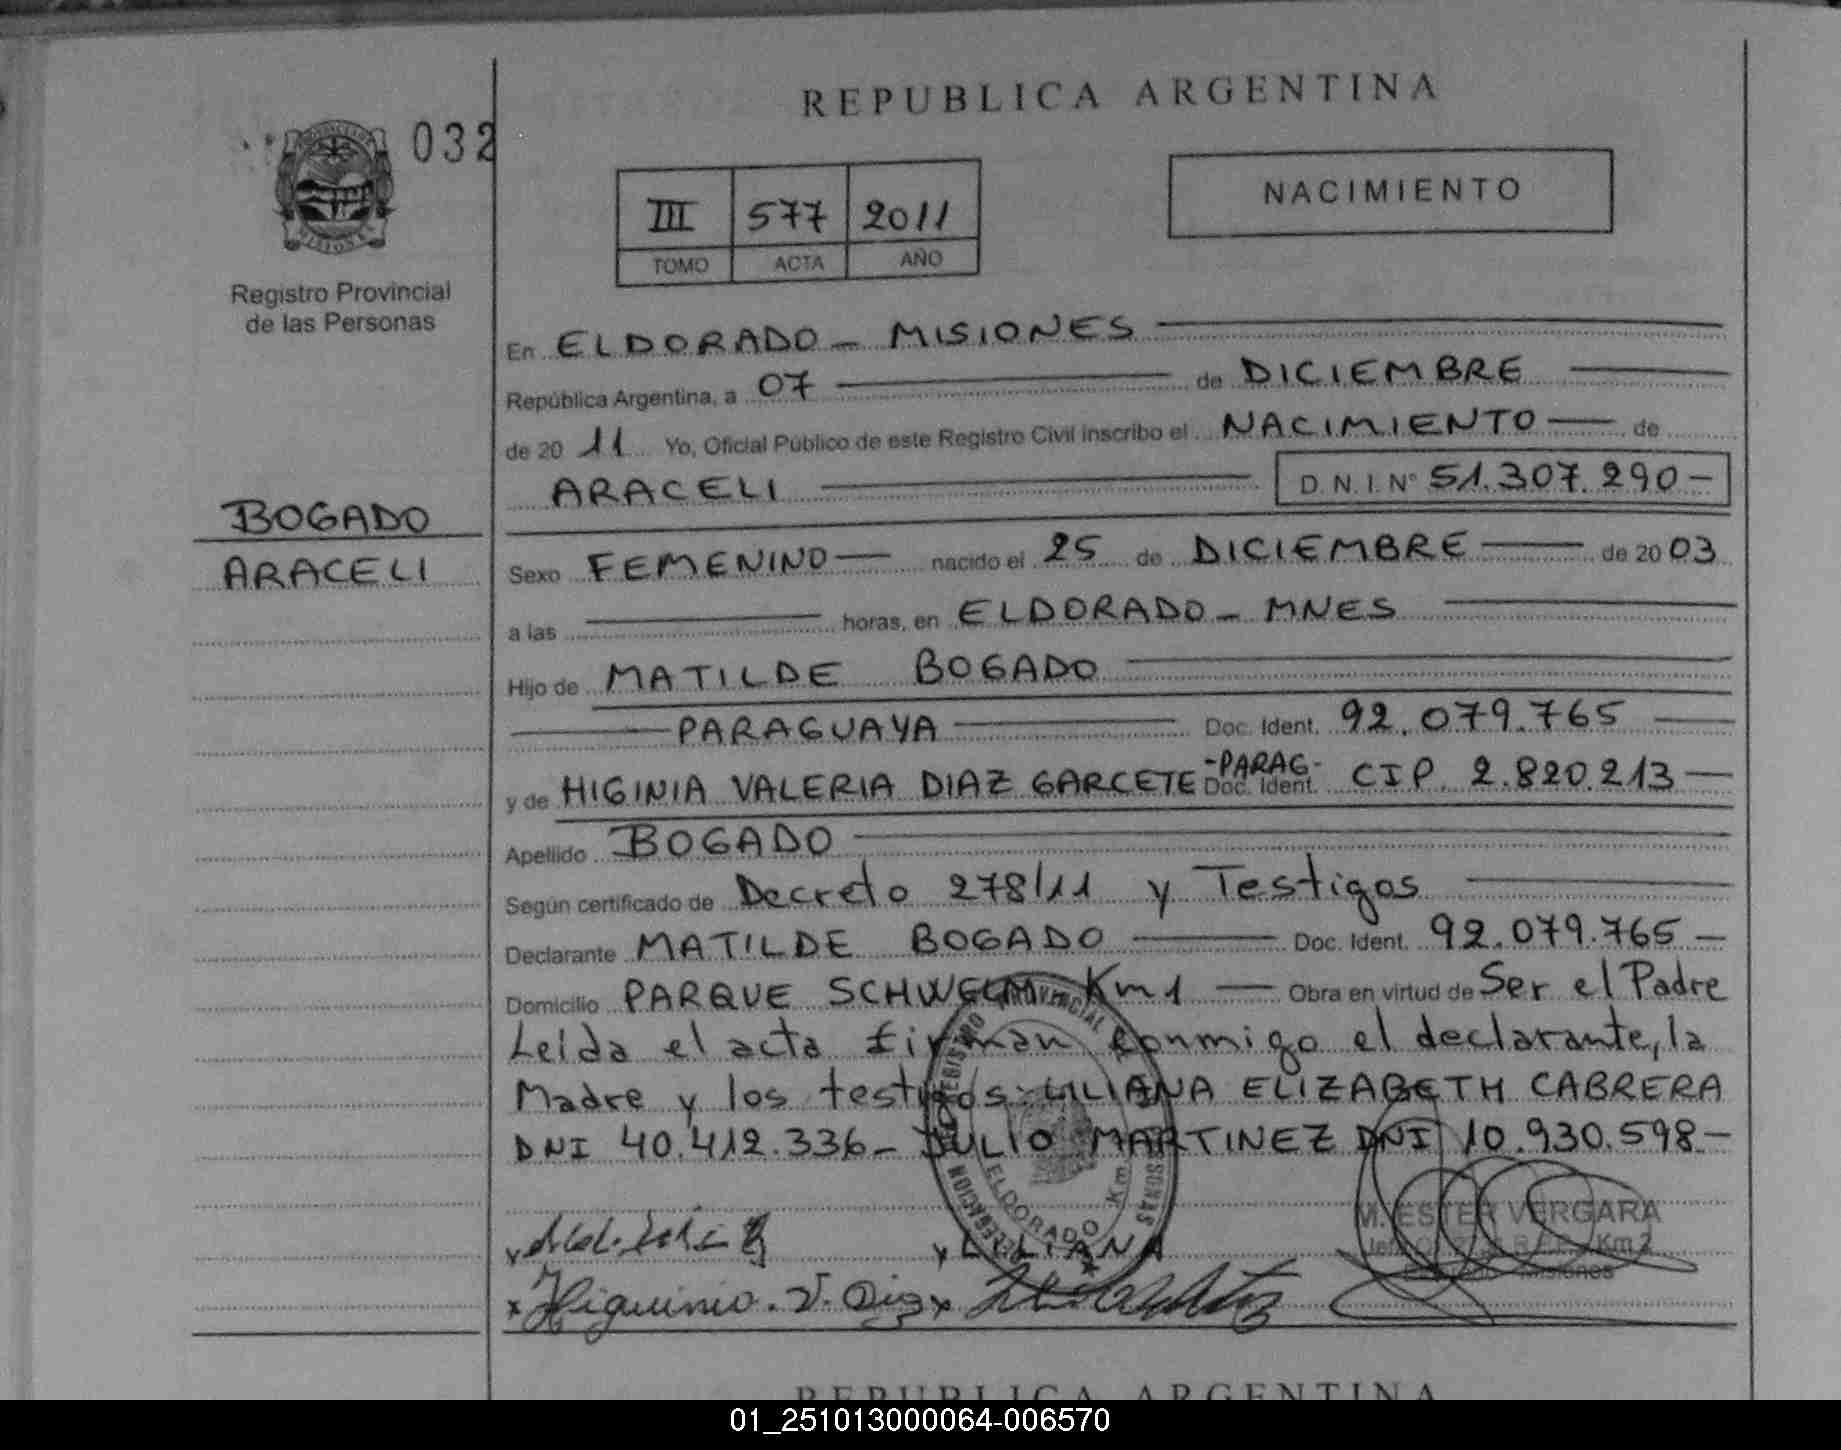 REPUBLICA ARGENTINA
032
NACIMIENTO
III 577 2011
TOMO ACTA AÑO
Registro Provincial
de las Personas
En ELDORADO - MISIONES
República Argentina, a 07 de DICIEMBRE
de 20 11 Yo, Oficial Público de este Registro Civil inscribo el NACIMIENTO de
ARACELI D.N.I. N° 51.307.290-
BOGADO
ARACELI
Sexo FEMENINO nacido el 25 de DICIEMBRE de 20 03
a las horas, en ELDORADO - MNES
Hijo de MATILDE BOGADO
PARAGUAYA Doc. Ident. 92.079.765
y de HIGINIA VALERIA DIAZ GARCETE -PARAG- Doc. Ident. CIP 2.820.213
Apellido BOGADO
Según certificado de Decreto 278/11 y Testigos
Declarante MATILDE BOGADO Doc. Ident. 92.079.765-
Domicilio PARQUE SCHWELM Km1 Obra en virtud de Ser el Padre
Leída el acta firman conmigo el declarante, la
Madre y los testigos: LILIANA ELIZABETH CABRERA
DNI 40.412.336- JULIO MARTINEZ DNI 10.930.598-
ELDORADO Km
M. ESTER VERGARA
Km 2
Misiones
x LILIANA
x Higuinio. V. Diaz x
REPUBLICA ARGENTINA
01_251013000064-006570